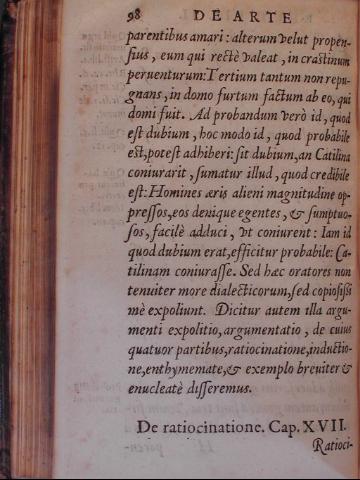 98 DE ARTE
parentibus amari: alterum velut propen-
sius, eum qui rectè valeat, in crastinum
peruenturum: Tertium tantum non repu-
gnans, in domo furtum factum ab eo, qui
domi fuit. Ad probandum verò id, quod
est dubium, hoc modo id, quod probabile
est, potest adhiberi: sit dubium, an Catilina
coniurarit, sumatur illud, quod credibile
est: Homines æris alieni magnitudine op-
pressos, eos denique egentes, & sumptuo-
sos, facilè adduci, vt coniurent: Iam id
quod dubium erat, efficitur probabile: Ca-
tilinam coniurasse. Sed hæc oratores non
tenuiter more dialecticorum, sed copiosissi
mè expoliunt. Dicitur autem illa argu-
menti expolitio, argumentatio, de cuius
quatuor partibus, ratiocinatione, inductio-
ne, enthymemate, & exemplo breuiter &
enucleatè disseremus.
De ratiocinatione. Cap. XVII.
Ratioci-